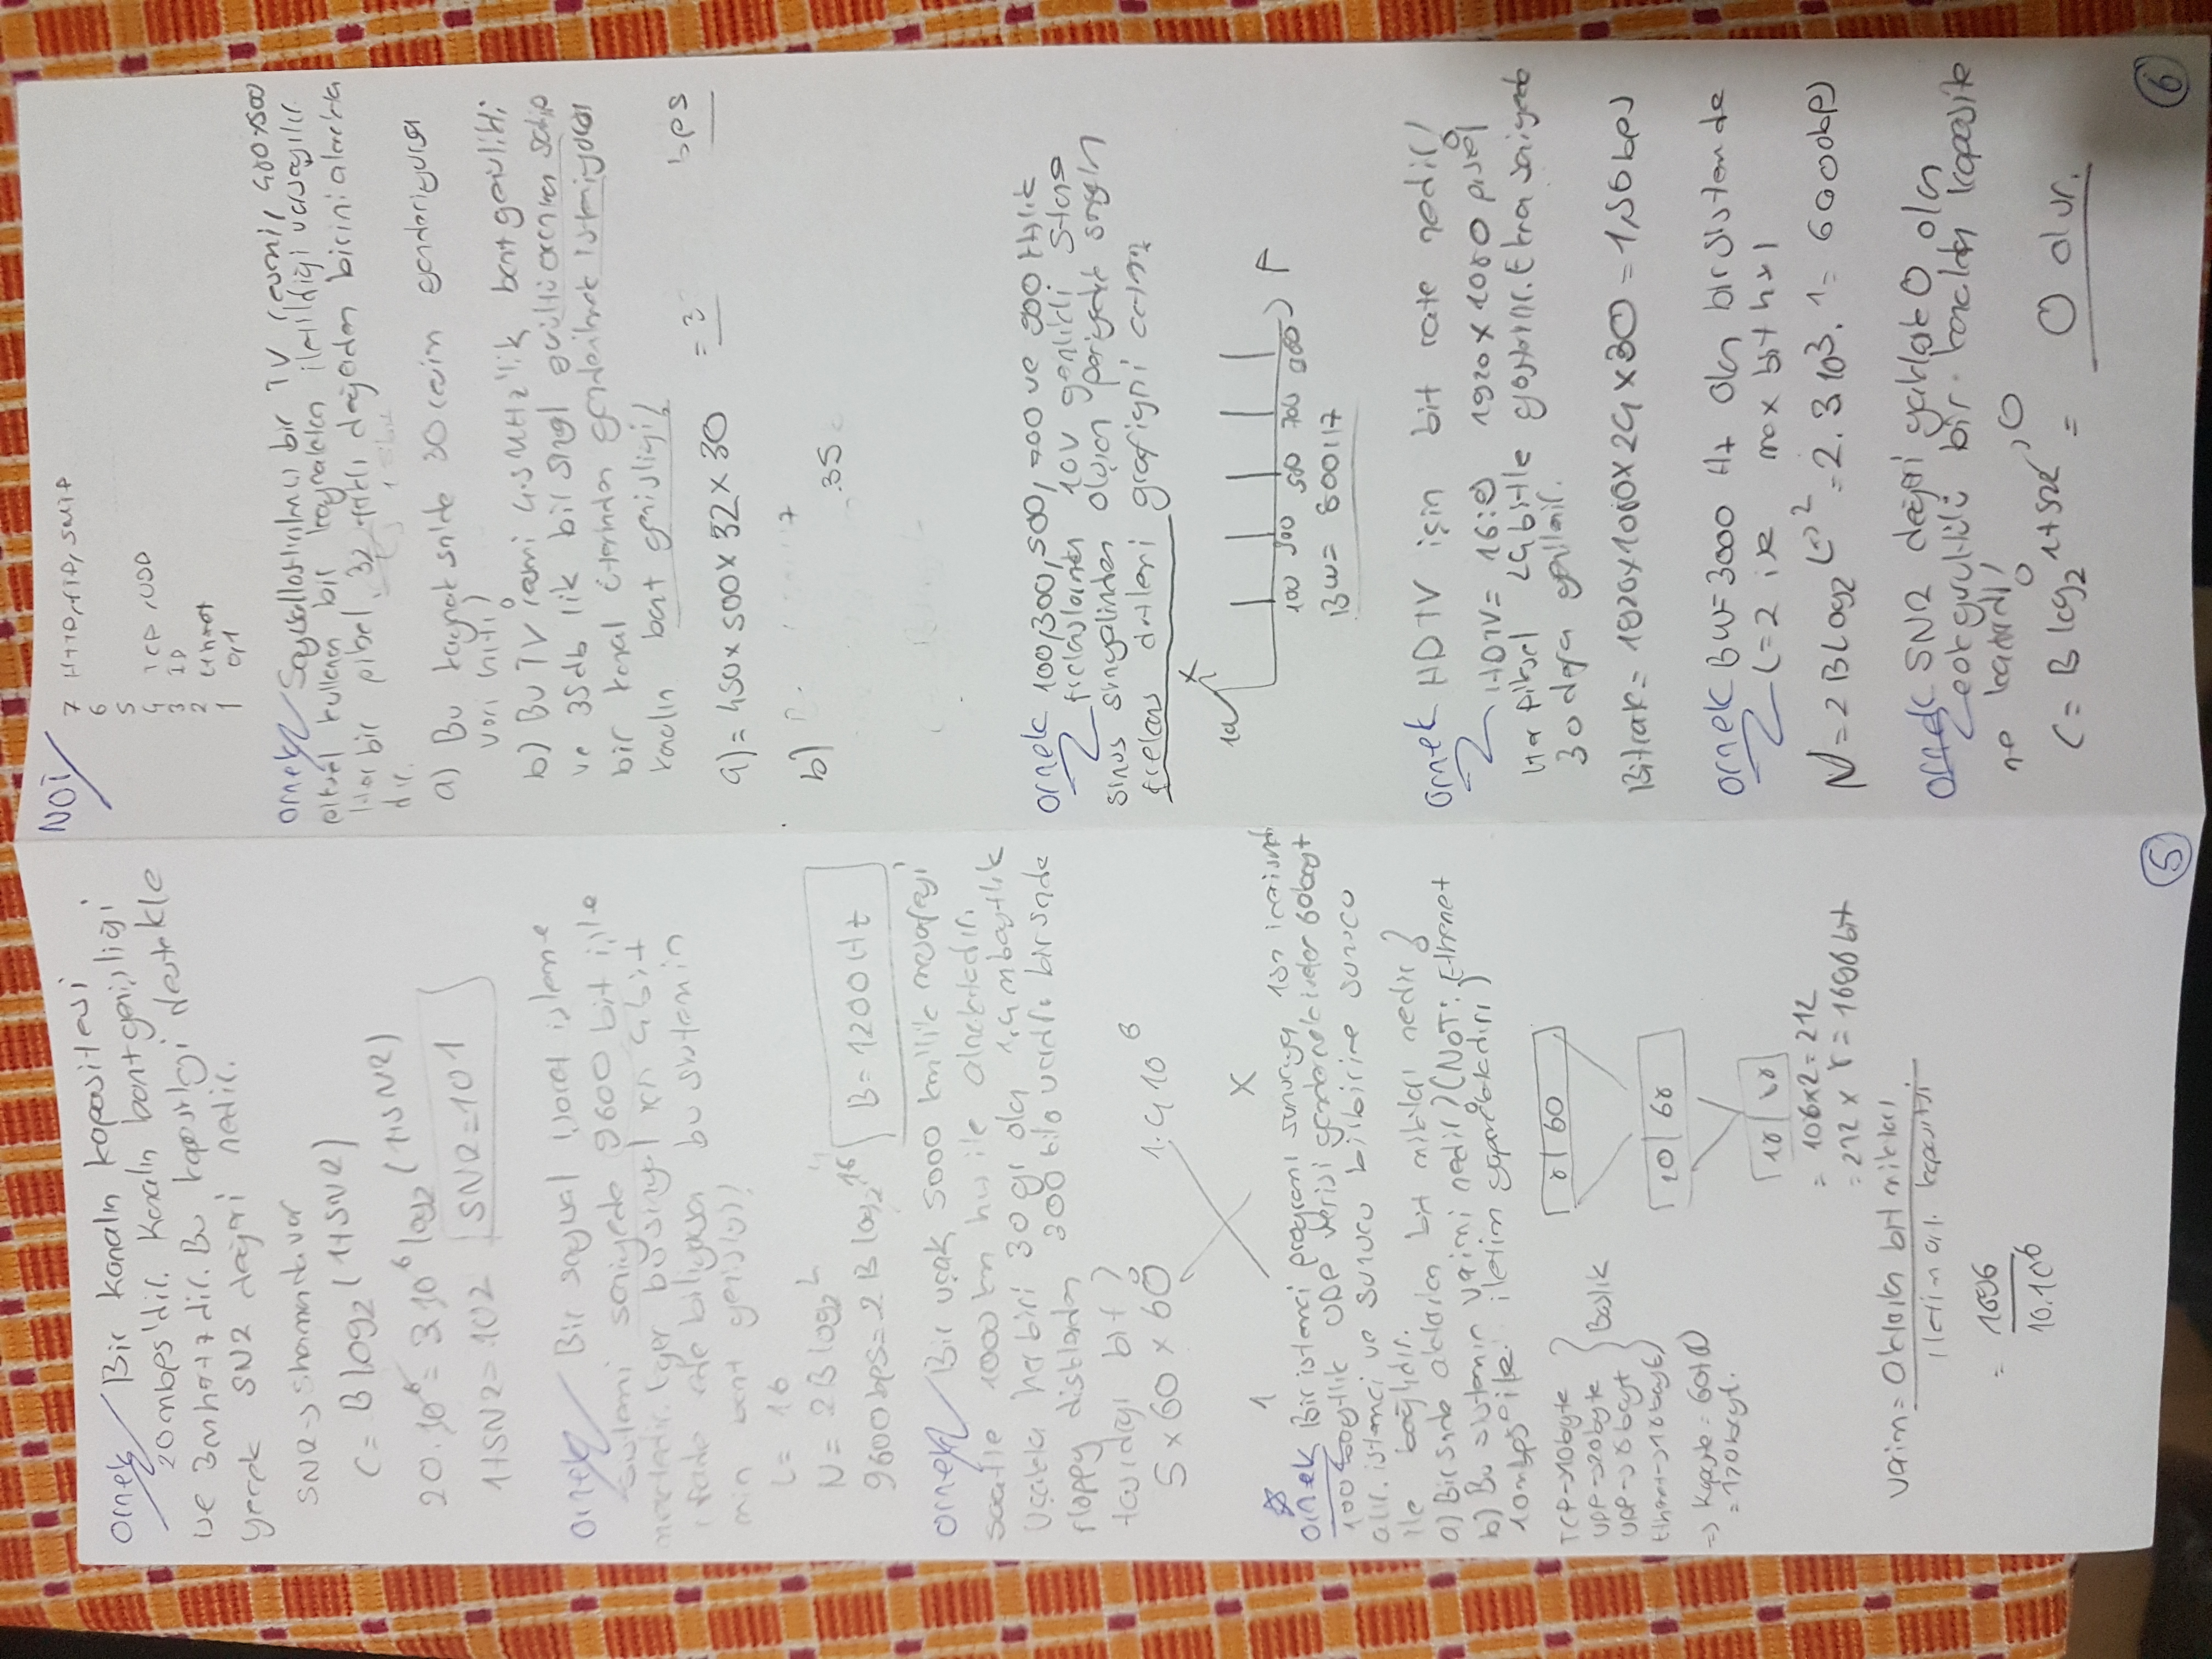 Örnek Bir kanalın kapasitesi
20mbps'dir. Kanalın bant genişliği
ise 3mhertzdir. Bu kapasiteyi destekle
yecek SNR değeri nedir.
SNR → Shannonda var
C = B log₂ (1+SNR)
20.10⁶ = 3.10⁶ log₂ (1+SNR)
1+SNR = 102 SNR = 101
Örnek Bir sayısal işaret işleme
sistemi saniyede 9600 bit işle
mektedir. Eğer bu sinyal için 4 bit
ifade ede biliyorsa bu sistemin
min bant genişliği?
L = 16
N = 2B log₂ L
9600bps = 2 B log₂ 16 B = 1200 Hz
Örnek Bir uçak 5000 km'lik mesafeyi
saatte 1000 km hız ile almaktadır.
Uçakta her biri 30 gr olan 1,4 mbaytlık
floppy disklerden 300 kilo vardır. bir snde
taşıdığı bit?
5 x 60 x 60 1.4 10⁶
1 X
Örnek Bir istemci programı sunucuya
100 baytlık UDP verisi 60 bayt
alır. istemci ve sunucu birbirine sunucu
ile bağlıdır.
a) Bir snde aktarılan bit miktarı nedir?
b) Bu sistemin verimi nedir? (NOT: Ethernet
10mbps ile iletim yapmaktadır)
TCP → 10byte
UDP → 20byte
UDP → 8 bayt
Ethernet → 18 bayt
Başlık
8 | 60
20 | 68
18 | 88
= 106 x 2 = 212
= 212 x 8 = 1696 bit
Verim = aktarılan bit miktarı
iletim kapasitesi
= 1696
10.10⁶
5
NOT
7 HTTP, FTP, SMTP
6
5
4 TCP, UDP
3 IP
2 Ethernet
1 0,1
Örnek Sayısallaştırılmış bir TV resmi, 480x500
piksel kullanan bir kaynaktan iletildiği varsayılır.
Her bir piksel 32 farklı değerden birini almakta
dır.
a) Bu kaynak snde 30 resim gönderiyorsa
veri hızı?
b) Bu TV resmi 4.5 MHz'lik bant genişlikli
ve 35db lik bir sinyal gürültü oranına sahip
bir kanal üzerinden gönderilmek isteniyorsa
kanalın bant genişliği?
a) = 450 x 500 x 32 x 30 = 3 bps
b)
35
Örnek 100, 300, 500, 700 ve 900 Hzlik
frekanslarının 10V genlikli 5 tane
sinüs sinyalinden oluşan periyodik sinyalin
frekans grafiğini çiziniz
10
100 300 500 700 900 F
BW = 800Hz
Örnek HDTV için bit rate nedir?
HDTV = 16:9 1920 x 1080 piksel
Her piksel 24 bitle gösterilir. Ekran saniyede
30 defa yenilenir.
Bitrate = 1920x1080x24x30 = 1,5Gbps
Örnek BW = 3000 Hz olan bir sistemde
L = 2 ise max bit hızı
N = 2 B Log₂ L→2 = 2. 3.10³. 1 = 6000bps
Örnek SNR değeri yaklaşık 0 olan
çok gürültülü bir kanalda kapasite
ne kadardır?
C = B log₂ 1+SNR → 0 = 0 olur.
6